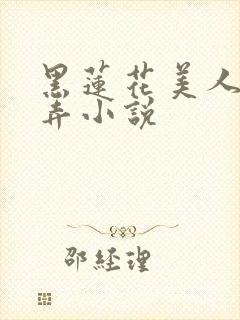 黑蓮花美人
弄小說
邵經理